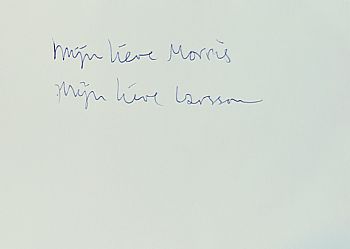 Mijn lieve Morris
Mijn lieve Larsson